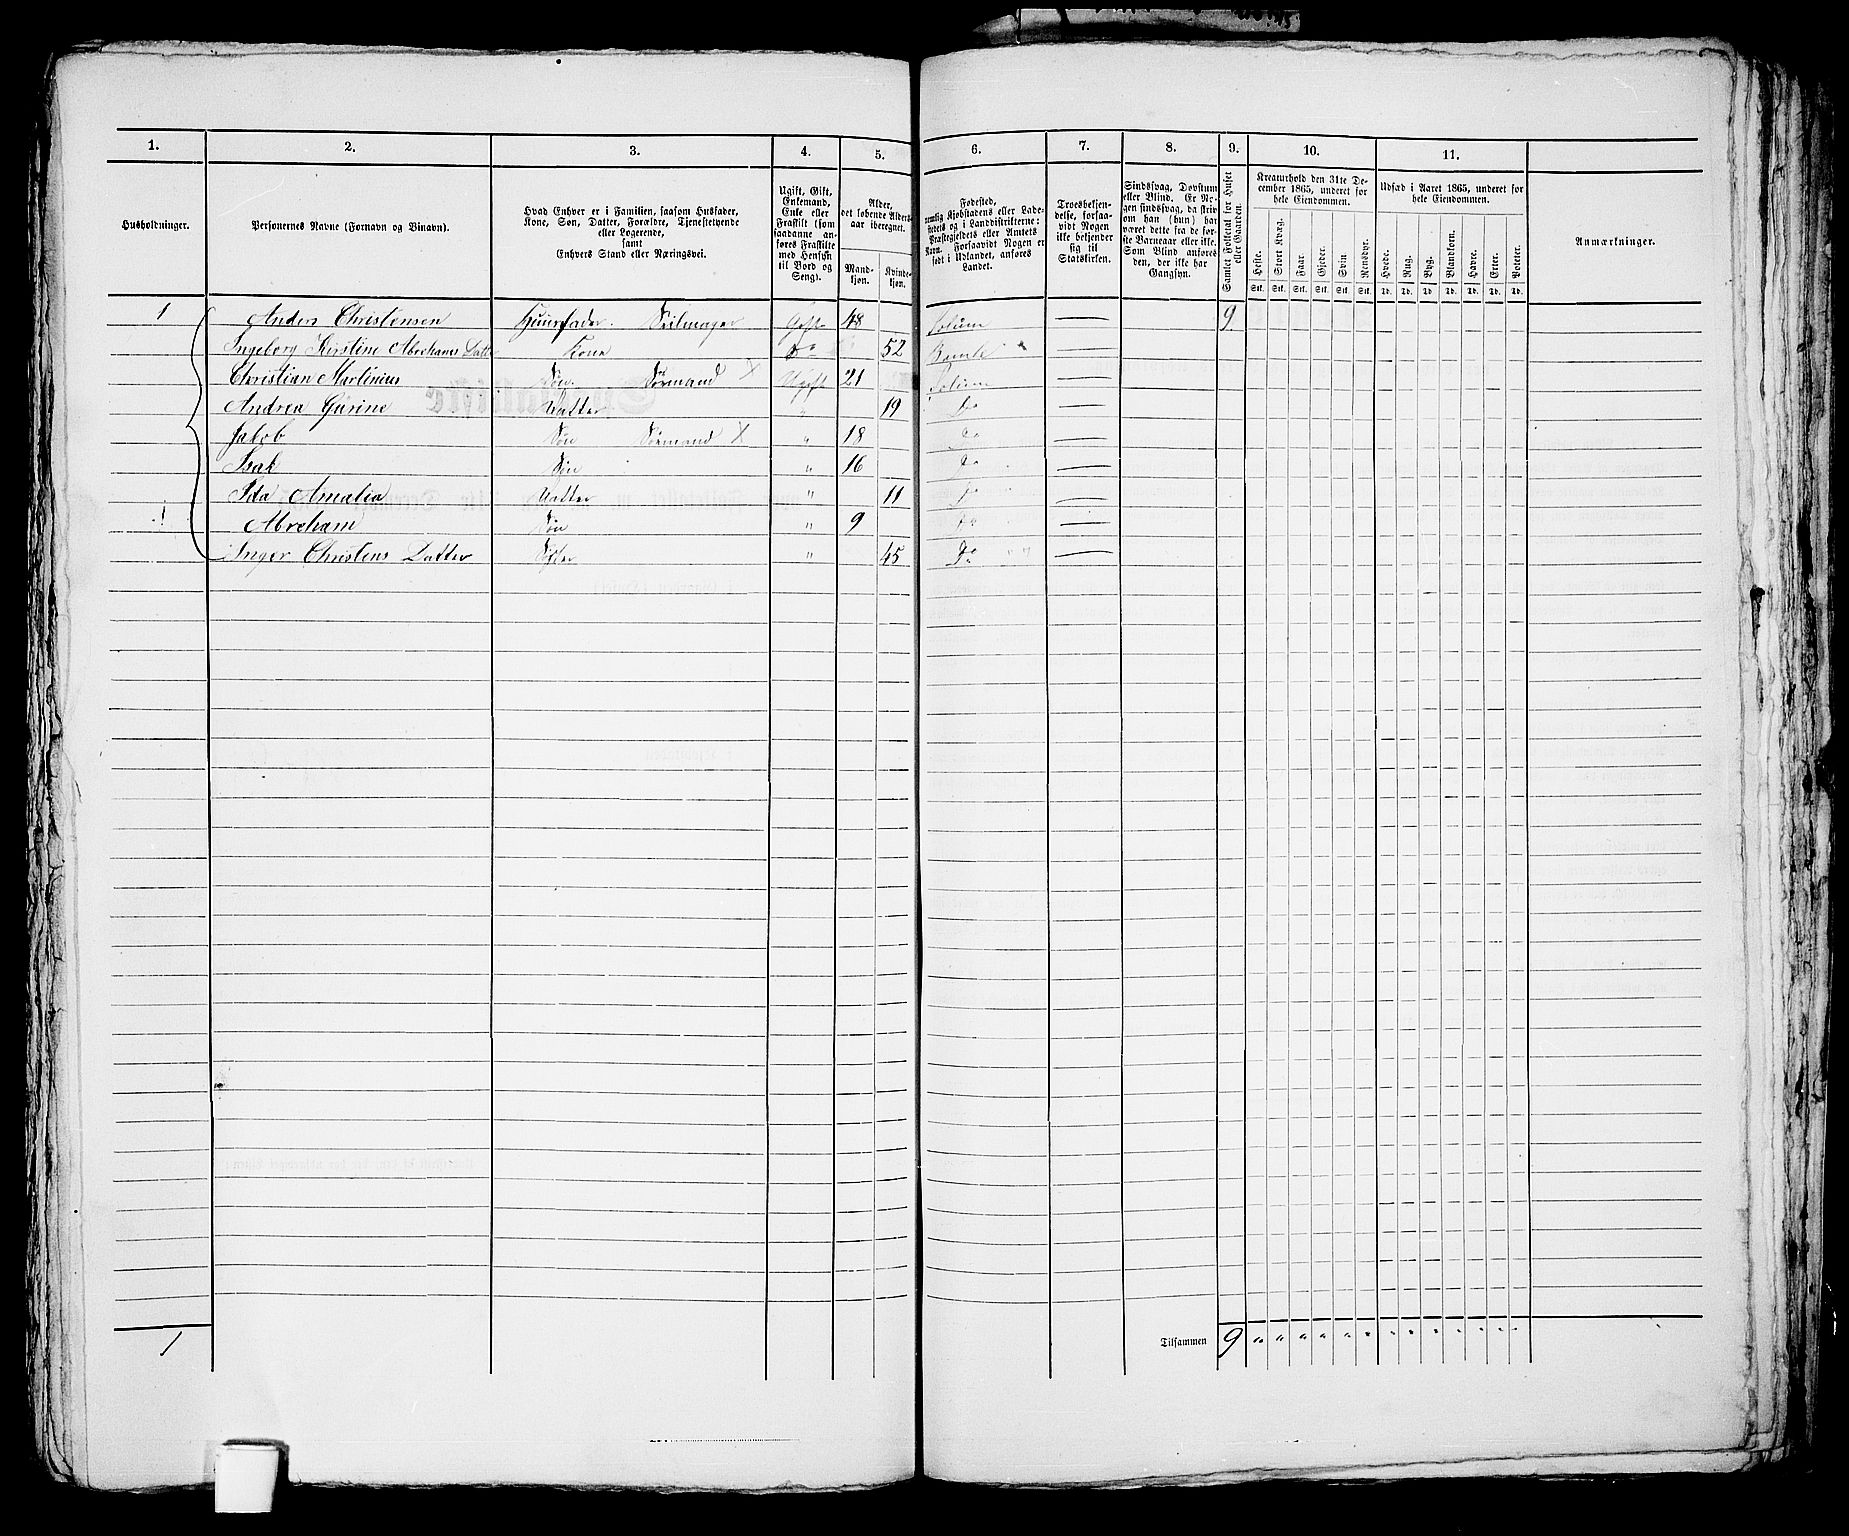 1. 2. 3. 4. 5. 6. 7. 8. 9. 10. 11.
Husholdninger.
Personernes Navne (Fornavn og Binavn).
Hvad Enhver er i Familien, saasom Husfader,
Kone, Søn, Datter, Forældre, Tjenestetyende
eller Logerende,
samt
Enhvers Stand eller Næringsvei.
Ugift, Gift,
Enkemand,
Enke eller
Fraskilt (som
saadanne an-
føres Fraskilte
med Hensyn
til Bord og
Seng).
Alder,
det løbende Alders-
aar iberegnet.
Mand-
kjøn.
Kvinde-
kjøn.
Fødested,
nemlig Kjøbstadens eller Lade-
stedets og i Landdistrikterne:
Præstegjeldets eller Amtets
Navn. Forsaavidt Nogen er
født i Udlandet, anføres
Landet.
Troesbekjen-
delse, forsaa-
vidt Nogen
ikke bekjender
sig til
Statskirken.
Sindssvag, Døvstum
eller Blind. Er No-
gen sindssvag, da skriv
om han (hun) har
været dette fra de før-
ste Barneaar eller ikke.
Som Blind anføres
den, der ikke har
Gangsyn.
Samlet Folketal for Huset
eller Gaarden.
Kreaturhold den 31te De-
cember 1865, underet for
hele Eiendommen.
Heste. Stort Kvæg. Faar. Gjeder. Svin Rensdyr.
Stk. Stk. Stk. Stk. Stk. Stk.
Udsæd i Aaret 1865, underet for
hele Eiendommen.
Hvede. Rug. Byg. Blandkorn. Havre. Erter. Poteter.
Td. Td. Td. Td. Td. Td. Td.
Anmærkninger.
1 Anders Christensen Huusfader. Seilmager Gift 48 Solum 9
Ingeborg Kirstine Abrahams Datter Kone Do 52 Bamle
Christian Martinius Søn. Sømand X Ugift 21 Solum
Andrea Gurine Datter " 19 Do
Jakob Søn Sømand X " 18 Do
Isak Søn " 16 Do
Ida Amalia Datter " 11 Do
1 Abraham Søn " 9 Do
Inger Christens Datter Syster " 45 Do
1 Tilsammen 9 " " " " " " " " " " " " "